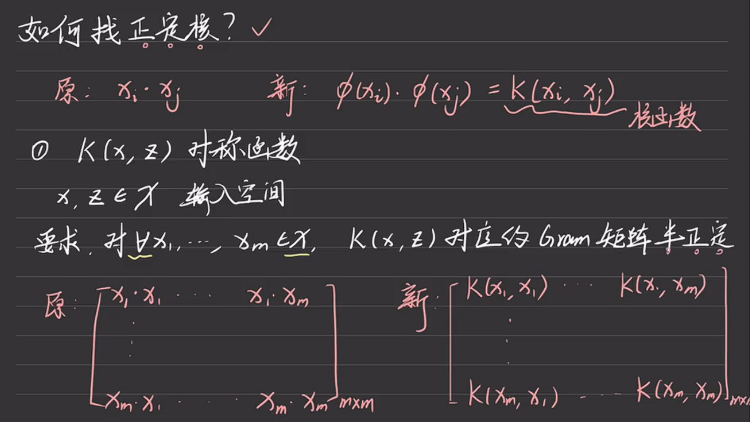 如何找正定核?✓
原: xi·xj 新: φ(xi)·φ(xj) = K(xi, xj)
核函数
① K(x, z) 对称函数
x, z ∈ X 输入空间
要求. 对∀x1, ···, xm ∈ X, K(x, z) 对应的 Gram 矩阵半正定
原: [ x1·x1 ··· x1·xm 新: [ K(x1, x1) ··· K(x1, xm)
⋮ ⋮
xm·x1 ···· xm·xm ]m×m K(xm, x1) ···· K(xm, xm) ]m×m